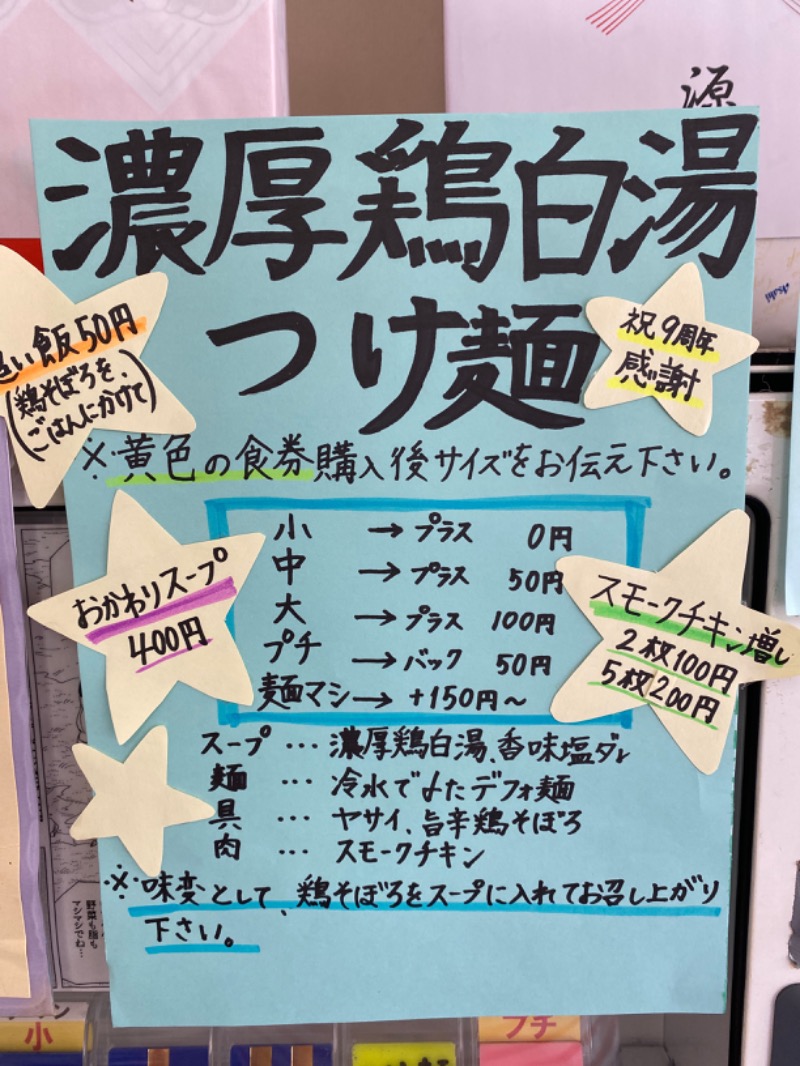 源
濃厚鶏白湯
つけ麺
祝9周年
感謝
追い飯50円
(鶏そぼろを、
ごはんにかけて)
※黄色の食券購入後サイズをお伝え下さい。
小 → プラス 0円
中 → プラス 50円
大 → プラス 100円
プチ → バック 50円
麺マシ → +150円~
おかわりスープ
400円
スモークチキン増し
2枚100円
5枚200円
スープ … 濃厚鶏白湯、香味塩ダレ
麺 … 冷水で〆たデフォ麺
具 … ヤサイ、旨辛鶏そぼろ
肉 … スモークチキン
※味変として、鶏そぼろをスープに入れてお召し上がり
下さい。
野菜も脂も
マシマシでね…
小
プチ